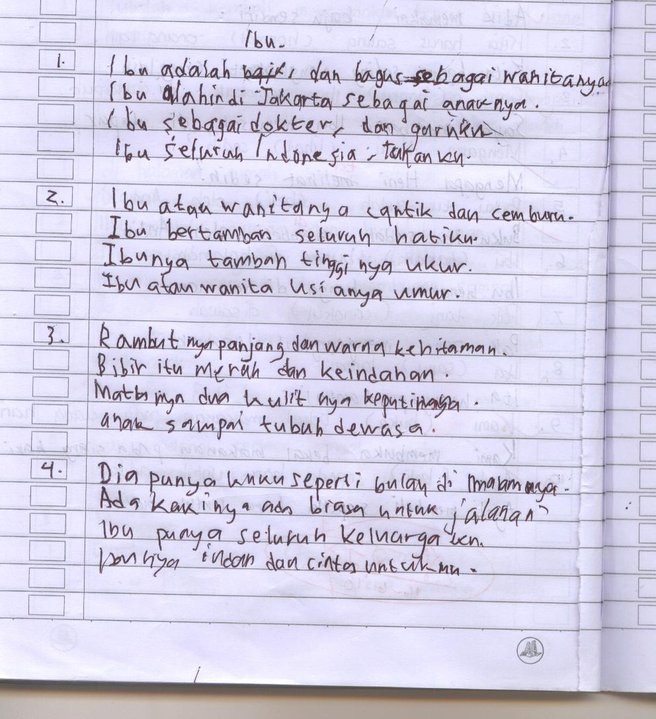 Ibu.
1. Ibu adalah baik, dan bagus sebagai wanitanya
Ibu lahindi Jakarta sebagai anaknya.
Ibu sebagai dokter, dan guruku
Ibu seluruh Indonesia,
2. Ibu atau wanitanya cantik dan cemburu.
Ibu bertambah seluruh hatiku.
Ibunya tambah tinggi nya ukur.
Ibu atau wanita usianya umur.
3. Rambut nya panjang dan warna kehitaman.
Bibir itu merah dan keindahan.
Matanya dua kulit nya keputihnya.
anak sampai tubuh dewasa.
4. Dia punya kuku seperti bulan di malamnya.
Ada kakinya ada biasa untuk jalanan
Ibu punya seluruh keluarga
punya indah dan cinta untukmu.